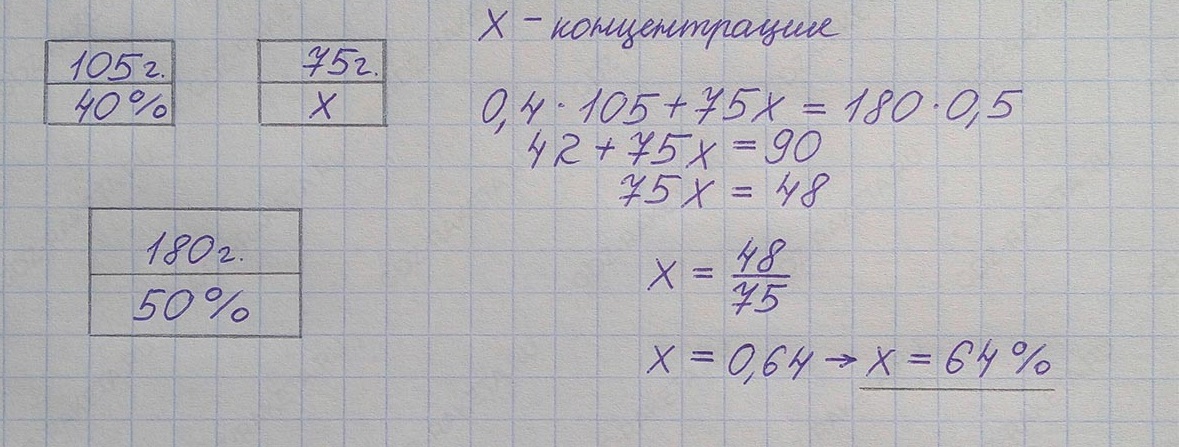 X - концентрация
105г.
75г.
40%
X
0,4 · 105 + 75X = 180 · 0,5
42 + 75X = 90
75X = 48
180г.
50%
X = 48/75
X = 0,64 → X = 64%